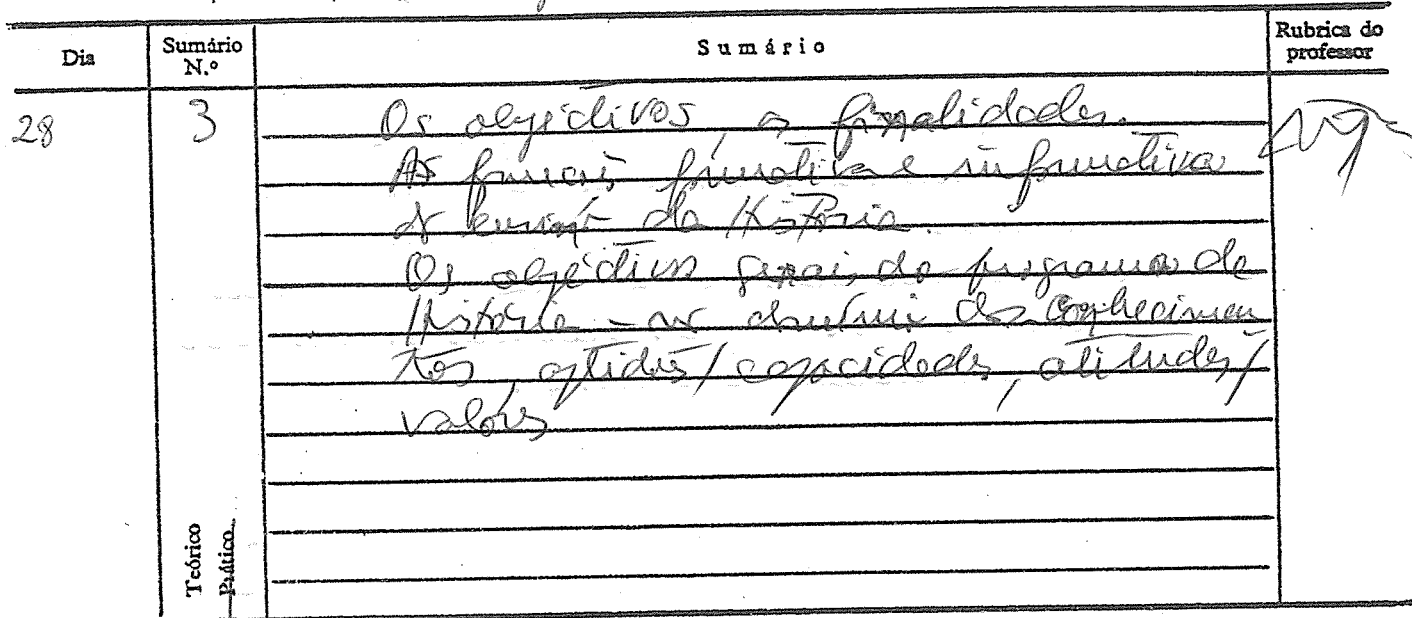 Dia
Sumário N.º
Sumário
Rubrica do professor
28
3
Os objéctivos, as finalidades.
As funções formativa e informativa
do ensino da História.
Os objéctivos gerais do programa de
História - no domínio dos conhecimen
tos, aptidões/capacidades, atitudes/
valores
Teórico
Prático